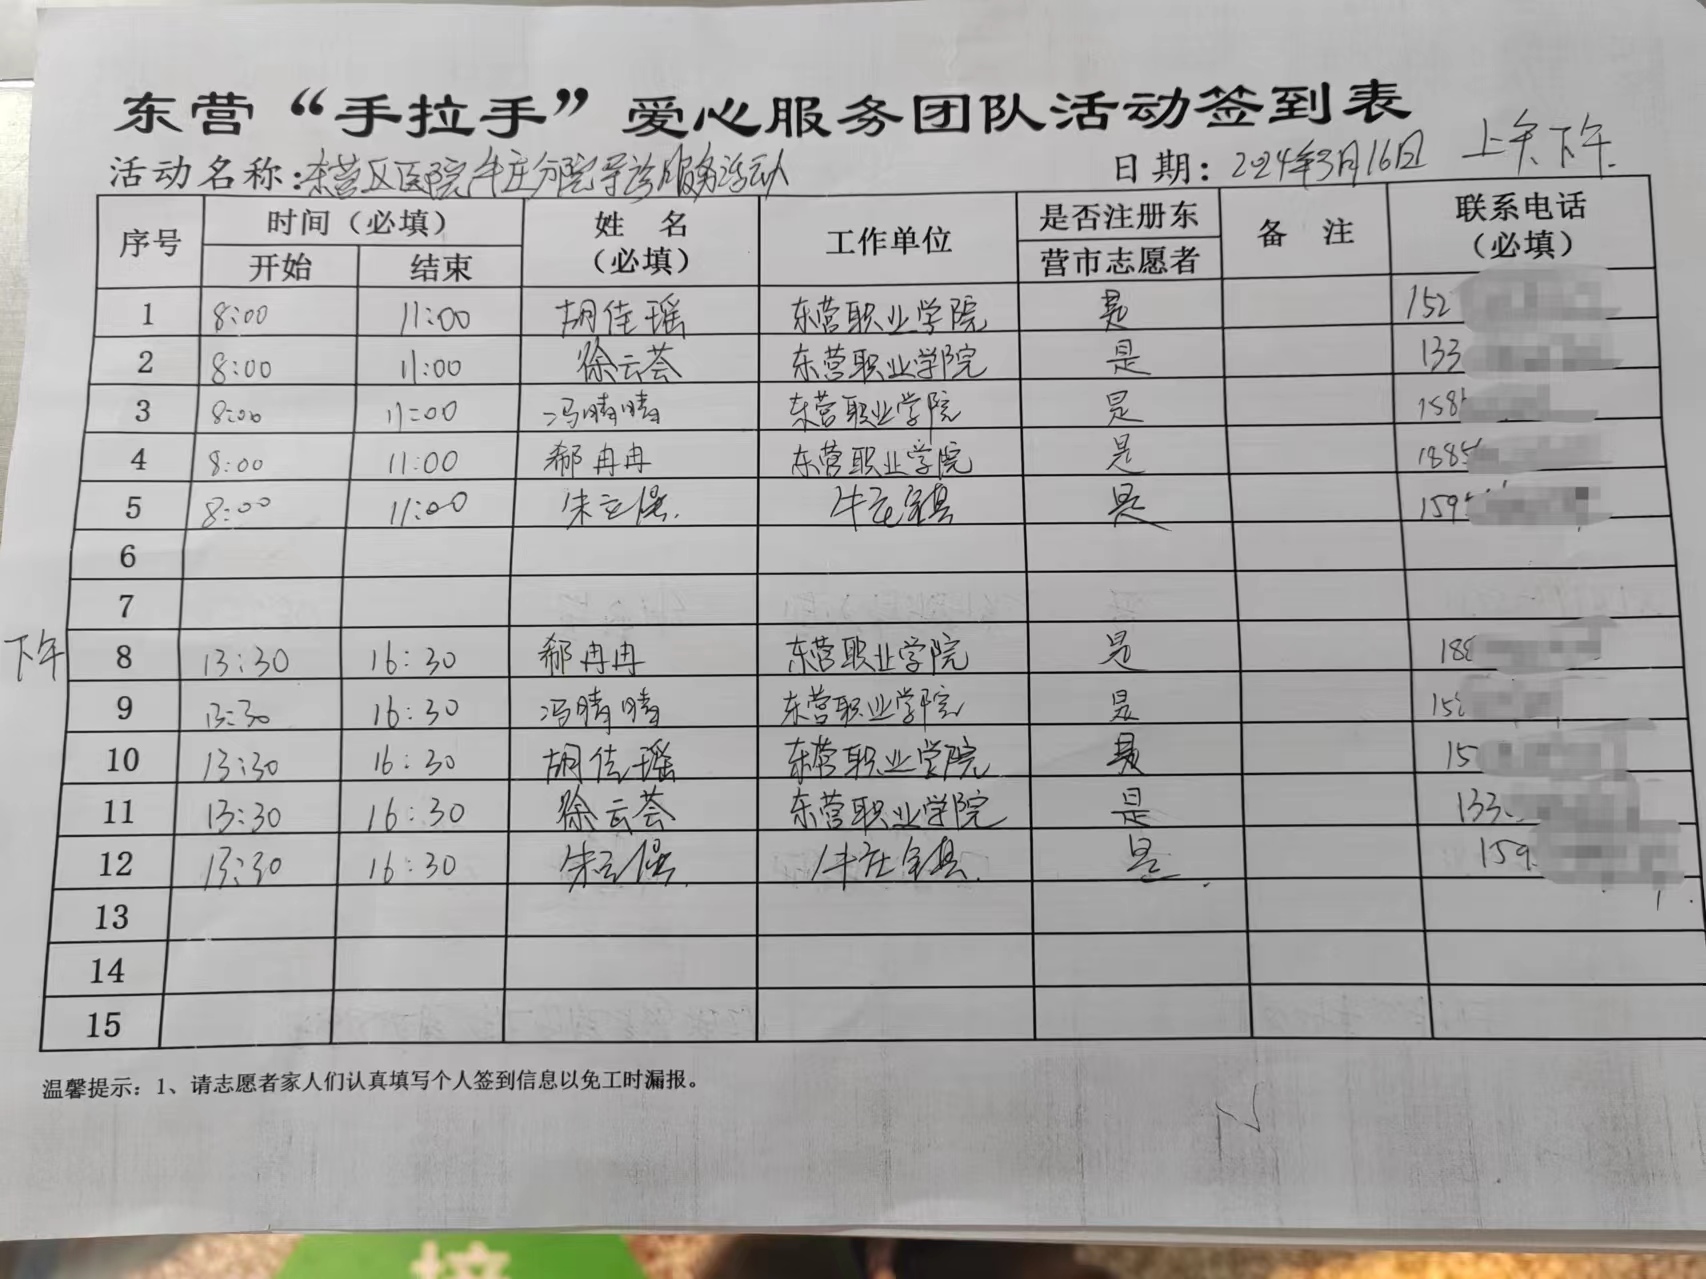 东营“手拉手”爱心服务团队活动签到表
活动名称:东营区医院牛庄分院导诊服务活动 日期:2024年3月16日 上午下午
序号 时间(必填) 姓 名(必填) 工作单位 是否注册东营市志愿者 备 注 联系电话(必填)
开始 结束
1 8:00 11:00 胡佳瑶 东营职业学院 是 152
2 8:00 11:00 徐云荟 东营职业学院 是 133
3 8:00 11:00 冯晴晴 东营职业学院 是 158
4 8:00 11:00 郗冉冉 东营职业学院 是 1885
5 8:00 11:00 朱立保. 牛庄 是 159
6
7
下午 8 13:30 16:30 郗冉冉 东营职业学院 是 188
9 13:30 16:30 冯晴晴 东营职业学院 是 15
10 13:30 16:30 胡佳瑶 东营职业学院 是 15
11 13:30 16:30 徐云荟 东营职业学院 是 133
12 13:30 16:30 朱立保. 牛庄 是 159
13
14
15
温馨提示:1、请志愿者家人们认真填写个人签到信息以免工时漏报。